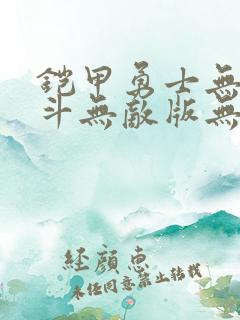 鎧甲勇士無
斗無敵版無
經顔惠
未经同意禁止转载